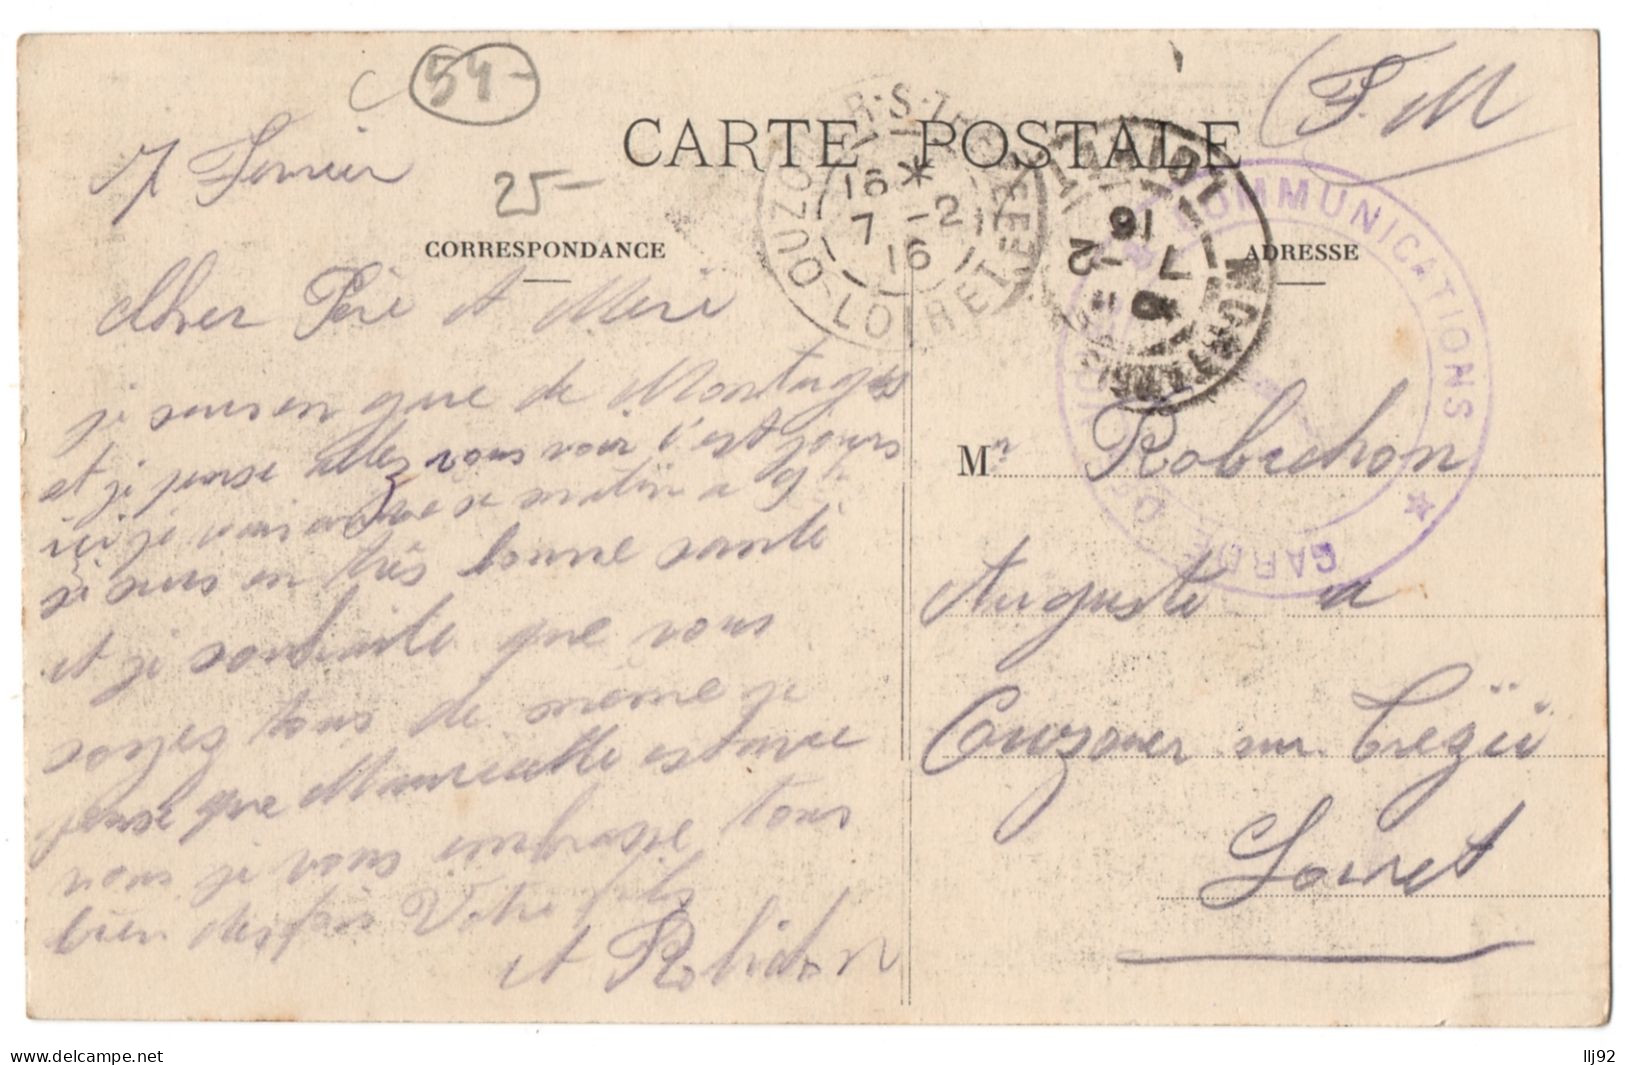 54-
(F. M
CARTE POSTALE
7 Fevrier
25-
CORRESPONDANCE
ADRESSE
OUZOUER-S-TREZEE
LOIRET
16 *
7 -2
16
MONTARGIS
LOIRET
7 -2
16
GARDE DES COMMUNICATIONS
Cher Père et Mere
je que de Montargis
et je pense vous voir c'est jours
ici je matin a 6h
je suis en très bonne santé
et je souhaite que vous
soyez tous de même je
pense que Mauricette est avec
vous je vous embrasse tous
bien des fois Votre fils
A Robichon
Mr Robichon
Auguste a
Ouzouer sur Trezée
Loiret
llj92